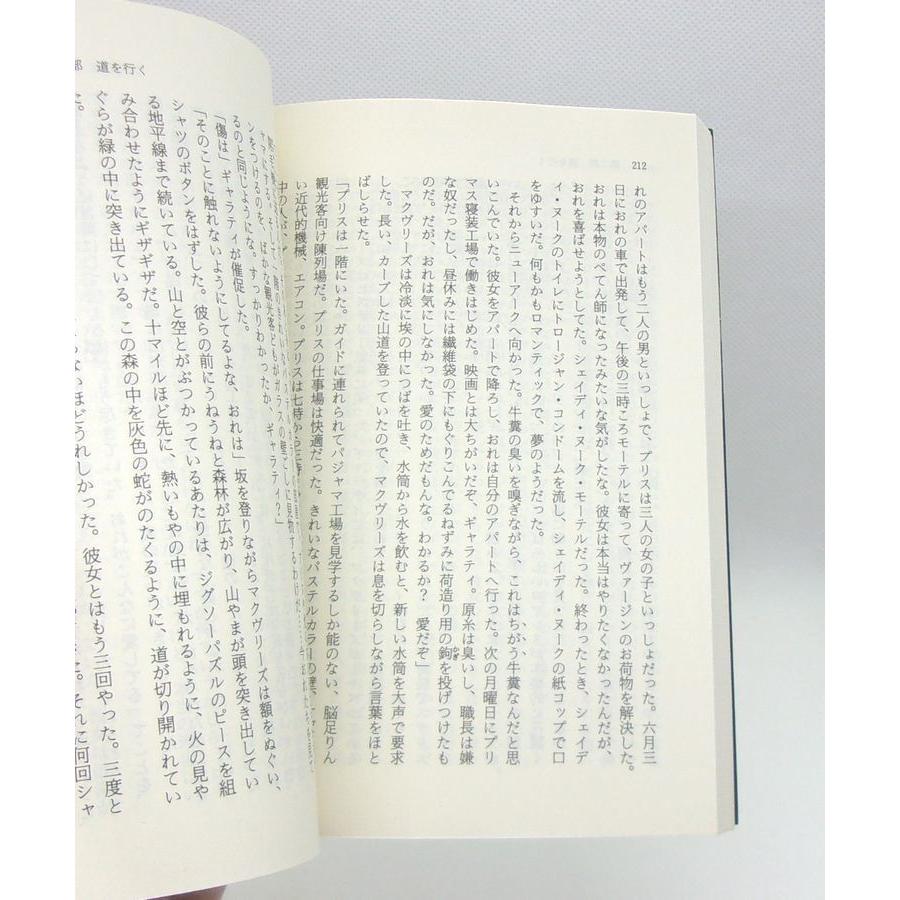 212
れのアパートはもう二人の男といっしょで、プリスは三人の女の子といっしょだった。六月三
日におれの車で出発して、午後の三時ころモーテルに寄って、ヴァージンのお荷物を解決した。
おれは本物のぺてん師になったみたいな気がしたな。彼女は本当はやりたくなかったんだが、
おれを喜ばせようとしてた。シェイディ・ヌーク・モーテルだった。終わったとき、シェイデ
ィ・ヌークのトイレにトロージャン・コンドームを流し、シェイディ・ヌークの紙コップで口
をゆすいだ。何もかもロマンティックで、夢のようだった。
それからニューアークへ向かった。牛糞の臭いを嗅ぎながら、これはちがう牛糞なんだと思
いこんでいた。彼女をアパートで降ろし、おれは自分のアパートへ行った。次の月曜日にプリ
マス寝装工場で働きはじめた。映画とは大ちがいだぞ、ギャラティ。原糸は臭いし、職長は嫌
な奴だったし、昼休みには繊維袋の下にもぐりこんでるねずみに荷造り用の鉤を投げつけたも
のだ。だが、おれは気にしなかった。愛のためだもんな。わかるか？　愛だぞ」
マクヴリーズは冷淡に埃の中につばを吐き、水筒から水を飲むと、新しい水筒を大声で要求
した。長い、カーブした山道を登っていたので、マクヴリーズは息を切らしながら言葉をほと
ばしらせた。
「プリスは一階にいた。ガイドに連れられてパジャマ工場を見学するしか能のない、脳足りん
観光客向け陳列場だ。プリスの仕事場は快適だった。きれいなパステルカラーの壁、
い近代的機械、エアコン。プリスは七時から三時
部　道を行く
ャマにする。そして
ンをつけるのを、ばかな観光客どもがガラスの壁ごしに見物するわけだ
るのと同じようにな。すっかりわかったか、ギャラティ？」
「傷は」ギャラティが催促した。
「そのことに触れないようにしてるよな、おれは」坂を登りながらマクヴリーズは額をぬぐい、
シャツのボタンをはずした。彼らの前にうねうねと森林が広がり、山やまが頭を突き出してい
る地平線まで続いている。山と空とがぶつかっているあたりは、ジグソーパズルのピースを組
み合わせたようにギザギザだ。十マイルほど先に、熱いもやの中に埋もれるように、火の見や
ぐらが緑の中に突き出ている。この森の中を灰色の蛇がのたくるように、道が切り開かれてい
た。
ないほどうれしかった。彼女とはもう三回やった。三度と
それに何回シャ